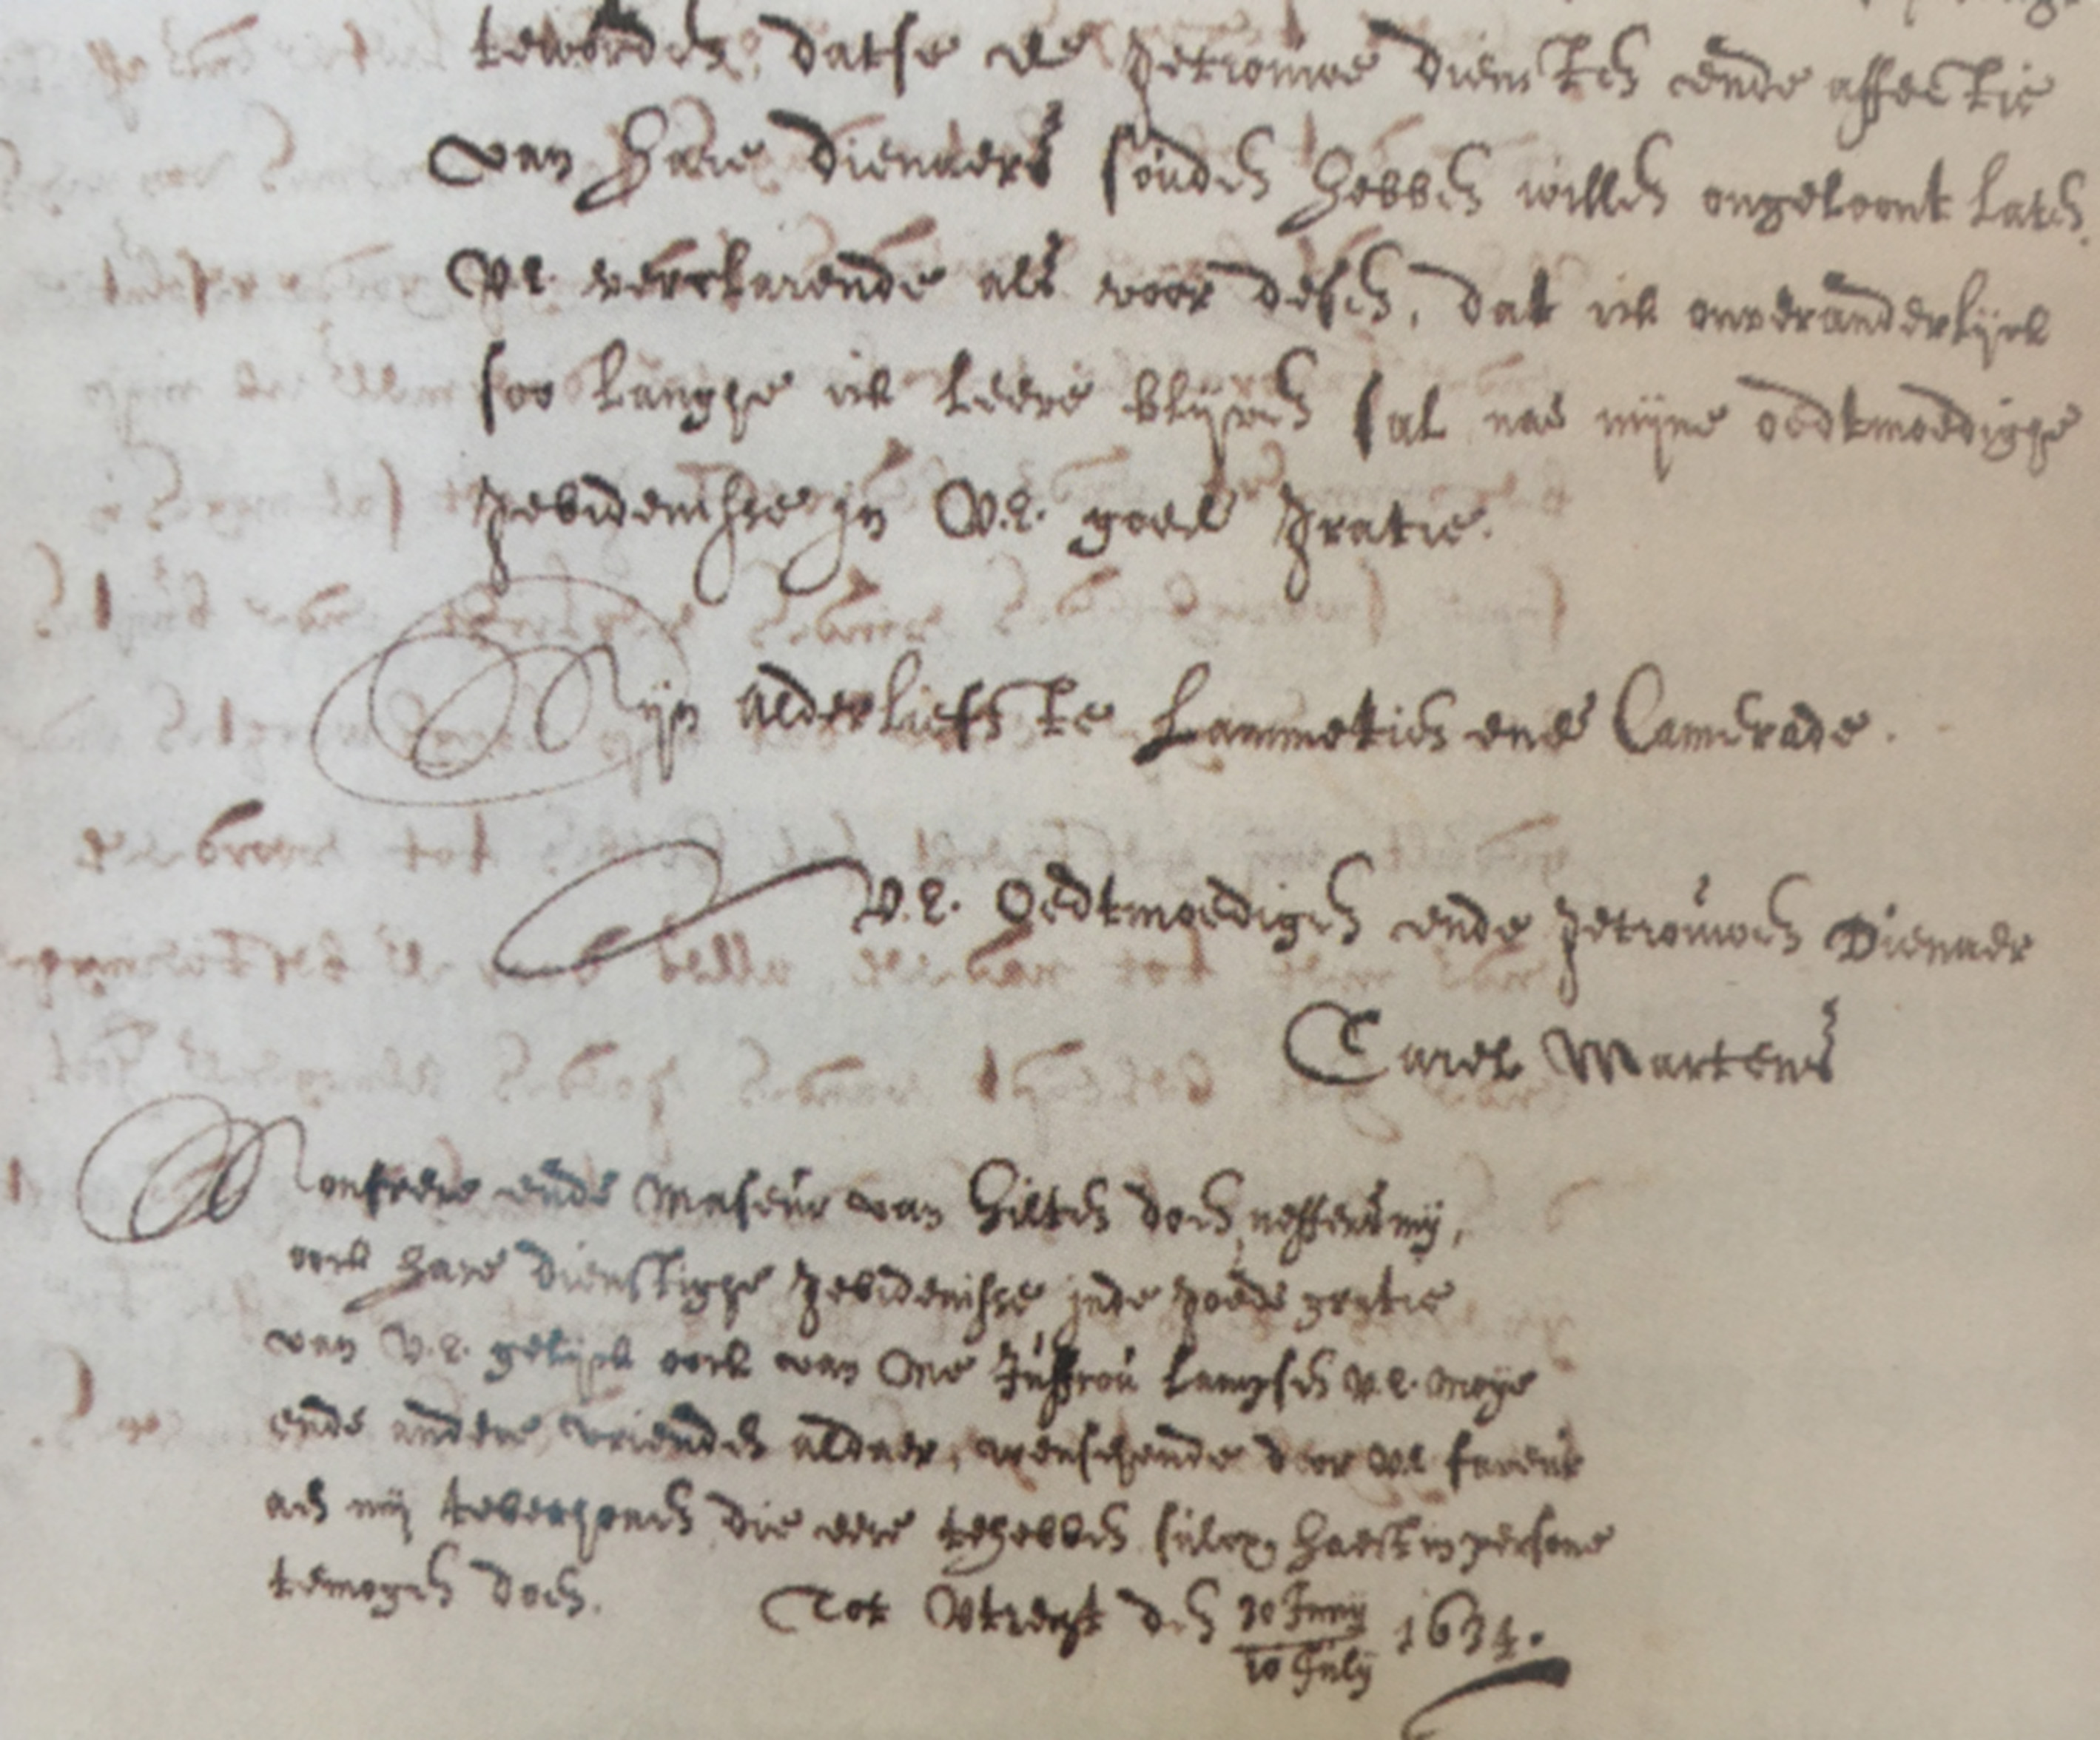 teworden, datse de getrouwe diensten ende affectie
van hare dienaers souden hebben willen ongeloont laten.
Vl. verclarende als voor desen, dat ick onveranderlijck
soo langhe ick leeve blijven sal nae mijne oodtmoedighe
gebiedenisse in V.L. goede gratie.
Mijn alderliefste Lammetien ende Camerade.
V.L. Oodtmoedigen ende getrouwen Dienaer
Carel Martens
Monfrere ende Maseur van Hilten doen neffens mij,
oock hare dienstighe gebiedenisse inde goede gratie
van V.L. gelijck oock van Me Juffrou Lampsen V.L. Moije
ende andere vrienden aldaer, wenschende door Vl faveur
aen mij tebethonen die eere tehebben sulcx haest in persone
temogen doen. Tot Utrecht den 30 Junij 1634.
10 Julij